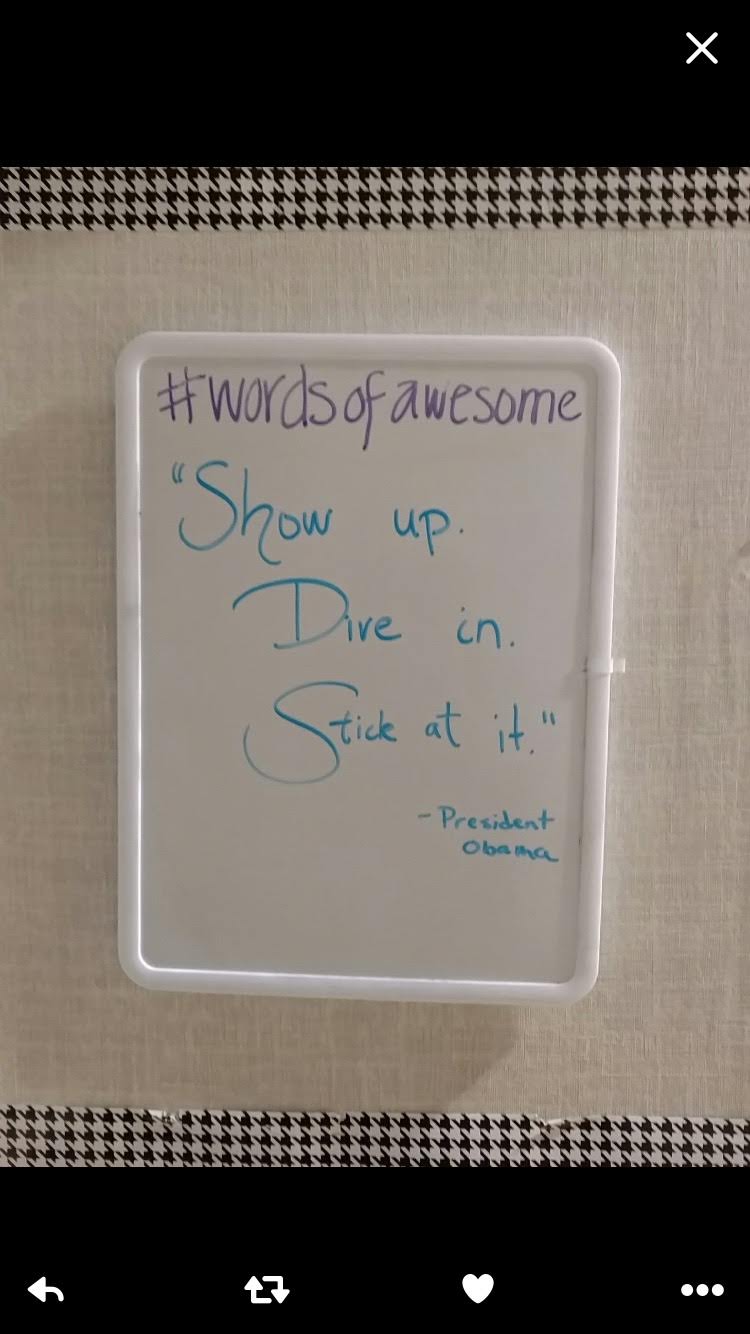 #wordsofawesome
"Show up.
Dive in.
Stick at it."
- President
Obama